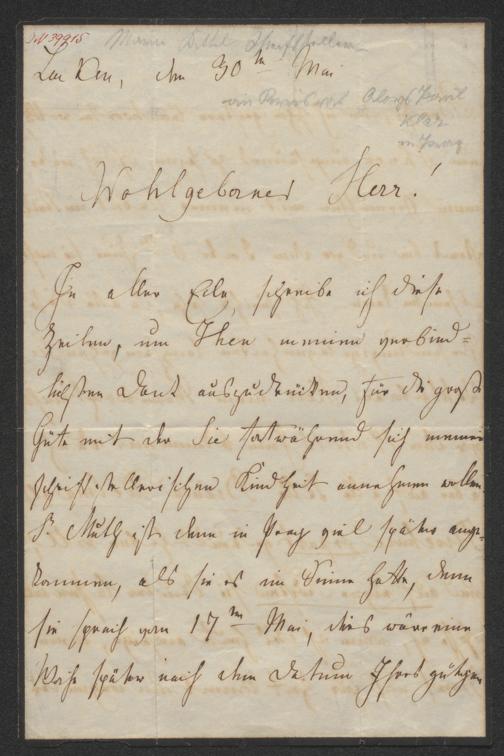 39915
den 30ten Mai
Aloys
Klar
in Prag
Wohlgeborner Herr!
In aller Eile, schreibe ich diese
Zeilen, um Ihen meinen verbind=
lichsten Dank auszudrücken, für die große
Güte mit der Sie fortwährend sich meiner
schriftstellerischen Kindheit annehmen wollen.
B. Muth ist denn in Prag viel später ange=
kommen, als sie es im Sinne hatte, denn
sie sprach vom 17ten Mai, dies wäre eine
Woche später nach dem Datum Ihres gütigen